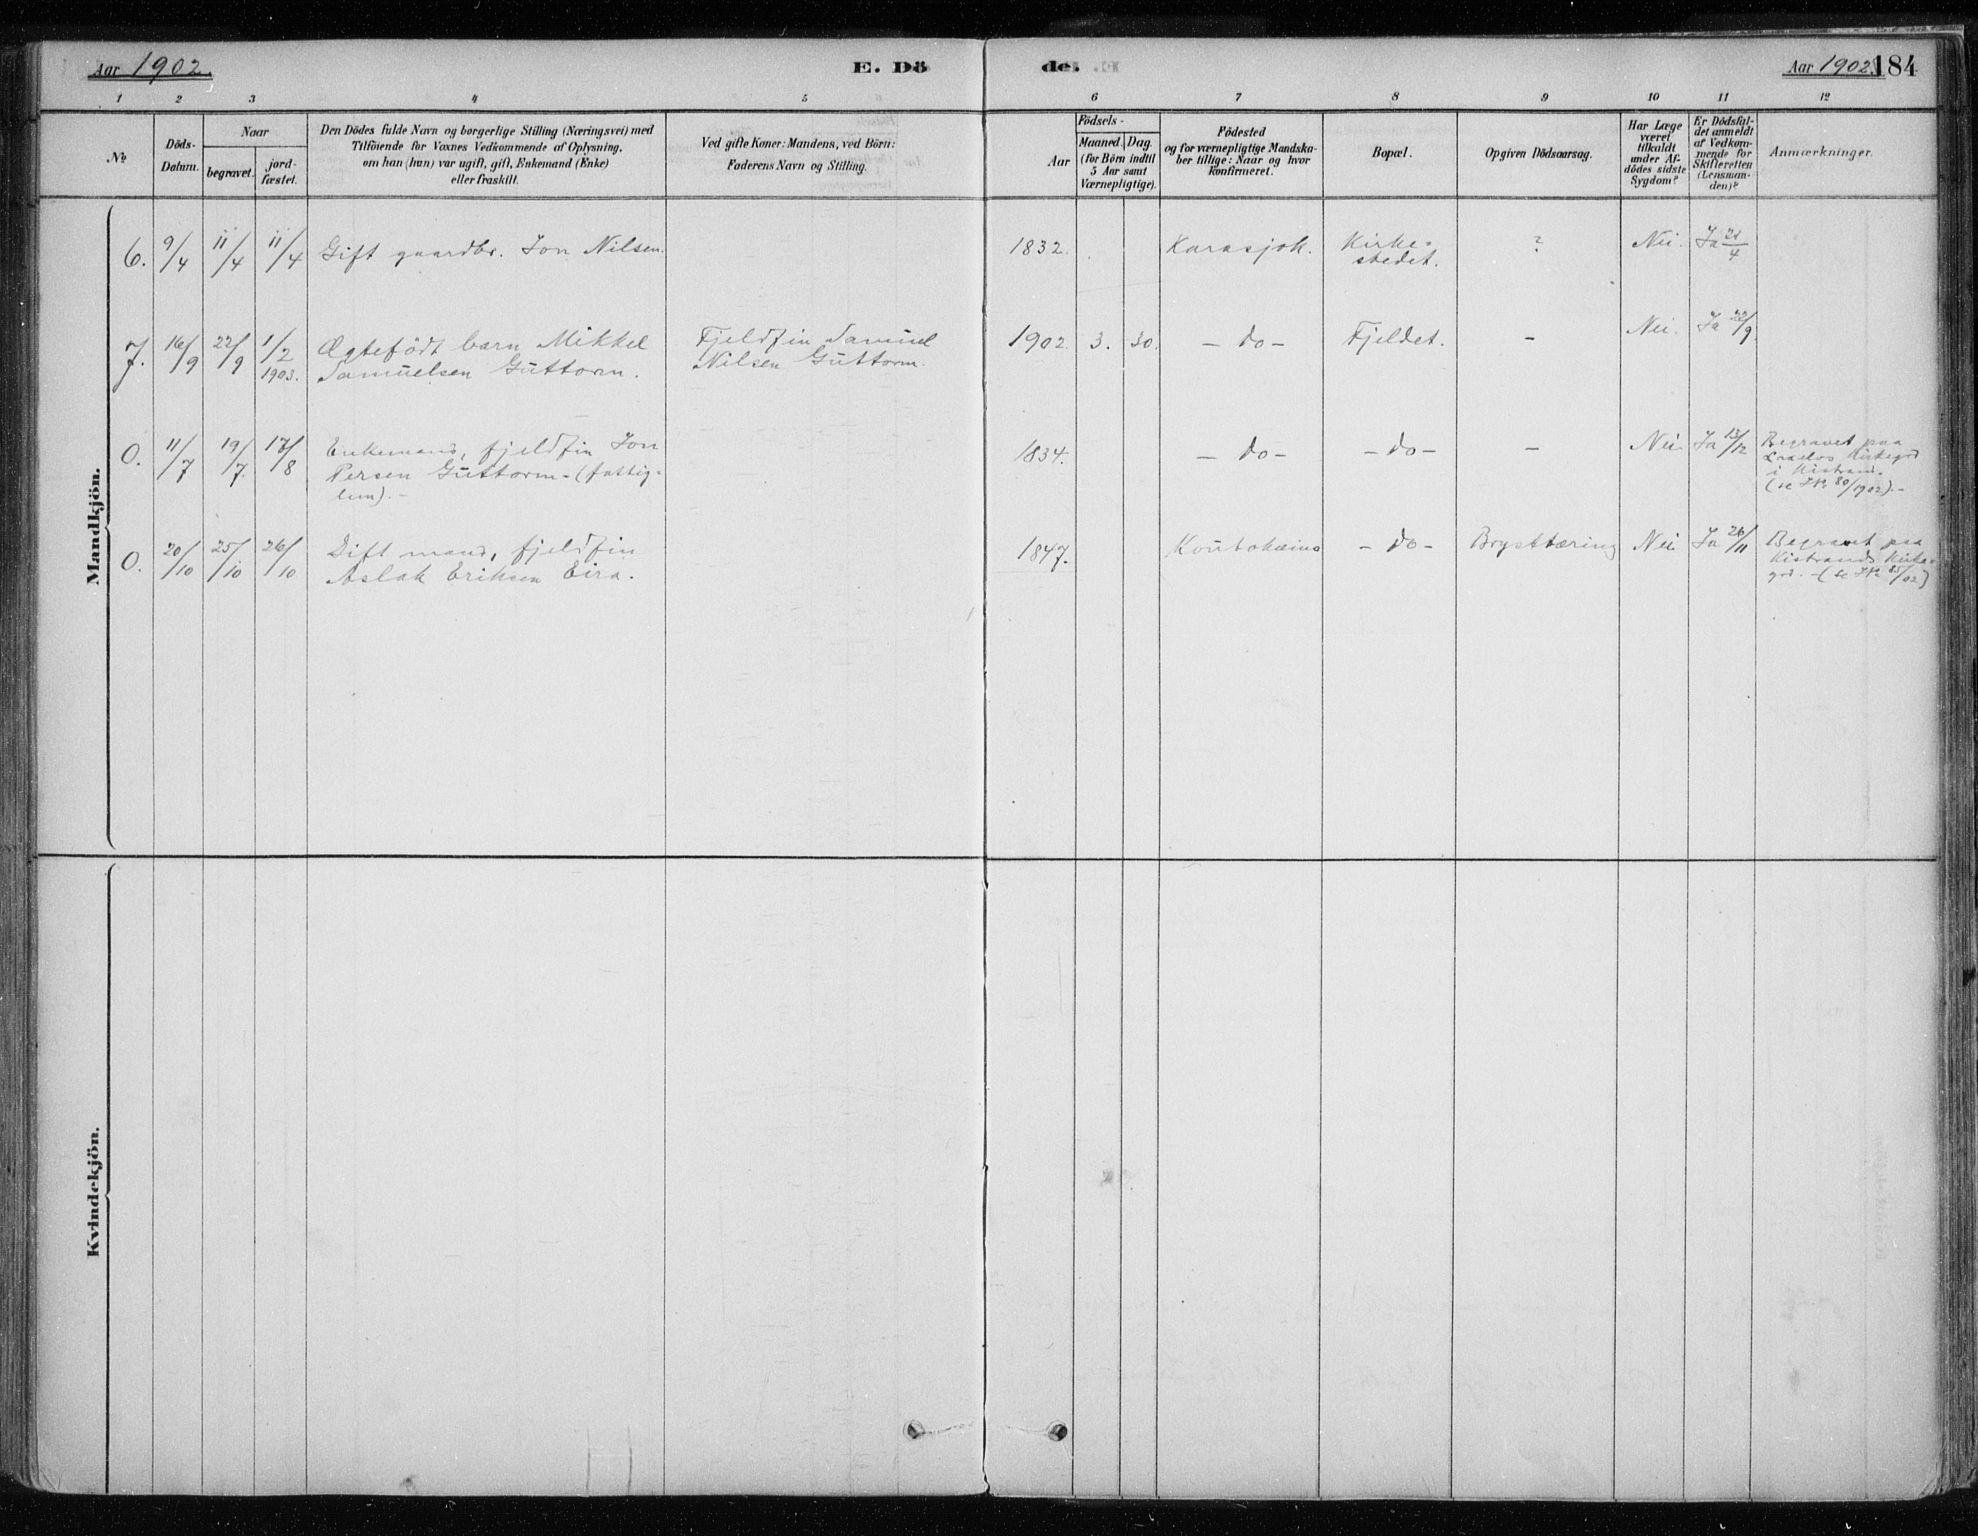 Aar 1902.
E. Dö
de.
Aar 1902.
184
1 2 3 4 5 6 7 8 9 10 11 12
№
Döds-
Datum.
Naar
begravet.
jord-
fæstet.
Den Dödes fulde Navn og borgerlige Stilling (Næringsvei) med
Tilföiende for Voxnes Vedkommende af Oplysning,
om han (hun) var ugift, gift, Enkemand (Enke)
eller fraskilt.
Ved gifte Koner: Mandens, ved Börn:
Faderens Navn og Stilling.
Födsels-
Aar
Maaned. Dag.
(for Börn indtil
5 Aar samt
Værnepligtige).
Födested
og for værnepligtige Mandska-
ber tillige: Naar og hvor
Konfirmeret.
Bopæl.
Opgiven Dödsaarsag.
Har Læge
været
tilkaldt
under Af-
dödes sidste
Sygdom?
Er Dödsfal-
det anmeldt
af Vedkom-
mende for
Skifteretten
(Lensman-
den)?
Anmærkninger.
Mandkjön.
6. 9/4 11/4 11/4 Gift gaardbr. Jon Nilsen. 1832. Karasjok. Kirke- ? Nei. Ja 21/4
stedet.
7. 16/9 22/9 1/2 Ægtefödt barn Mikkel Fjeldfin Samuel 1902 3. 30. - do - Fjeldet. - Nei. Ja 22/9.
1903. Samuelsen Guttorm. Nilsen Guttorm.
0. 11/7 19/7. 17/8 Enkemand, fjeldfin Jon 1834. - do - - do - - Nei Ja 13/12 Begravet paa
Persen Guttorm - (fattig- Kirkegrd
lem). - i Kistrand.
(se 80/1902). -
0. 20/10 25/10 26/10 Gift mand, fjeldfin 1847. Koutokeino - do - Brysttæring Nei Ja 26/11 Begravet paa
Aslak Eriksen Eira. Kistrands Kirke-
grd. - (se 85/02)
Kvindekjön.